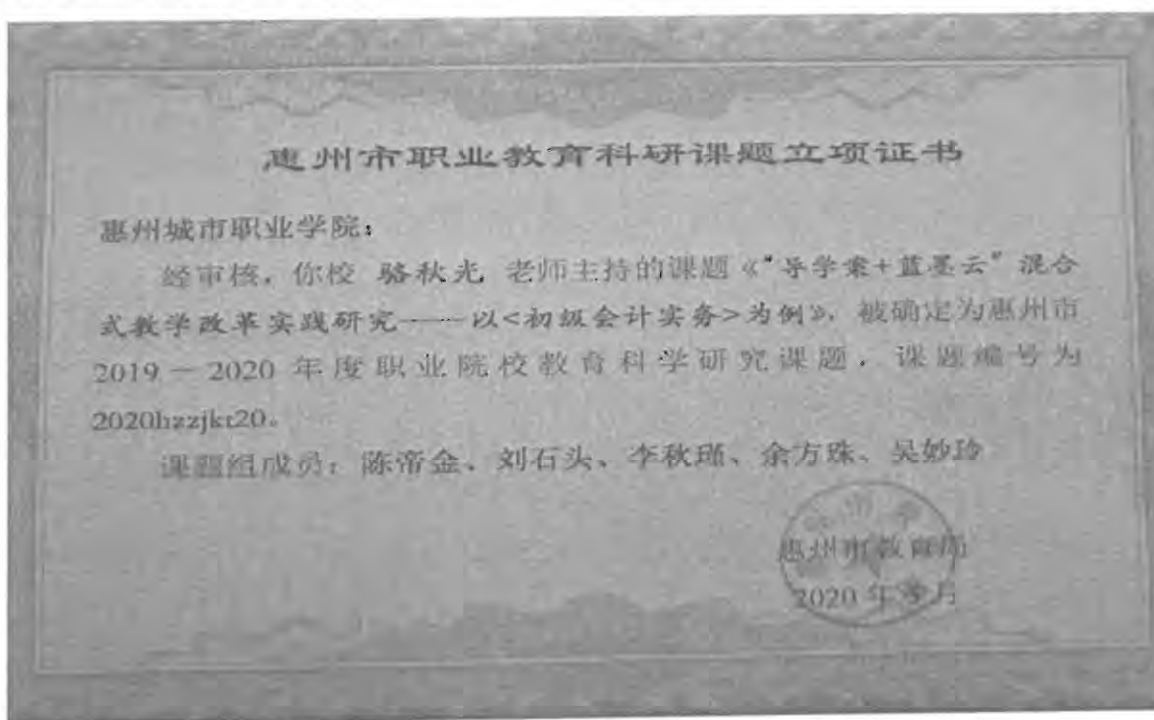 惠州市职业教育科研课题立项证书
惠州城市职业学院：
经审核，你校 骆秋光 老师主持的课题《“导学案+蓝墨云”混合
式教学改革实践研究——以<初级会计实务>为例》，被确定为惠州市
2019－2020 年度职业院校教育科学研究课题，课题编号为
2020hzzjkt20。
课题组成员：陈帝金、刘石头、李秋瑾、余方珠、吴妙玲
惠州市教育局
2020 年 月